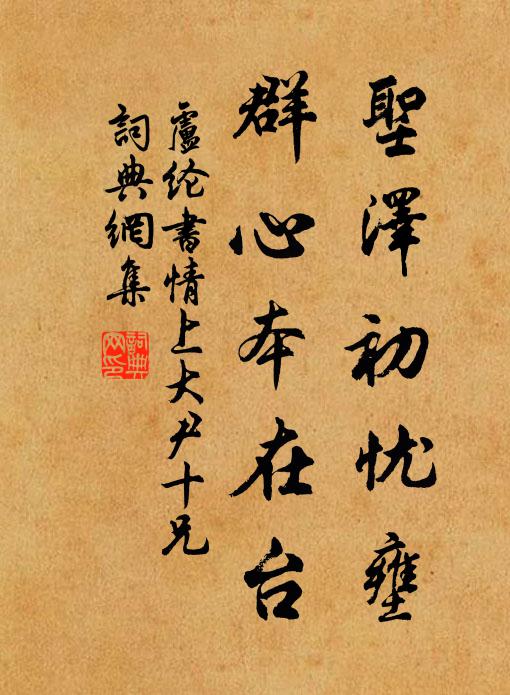 聖澤初忧壅
群心本在台
盧纶書情上大尹十兄
詞典網集
詞典网印